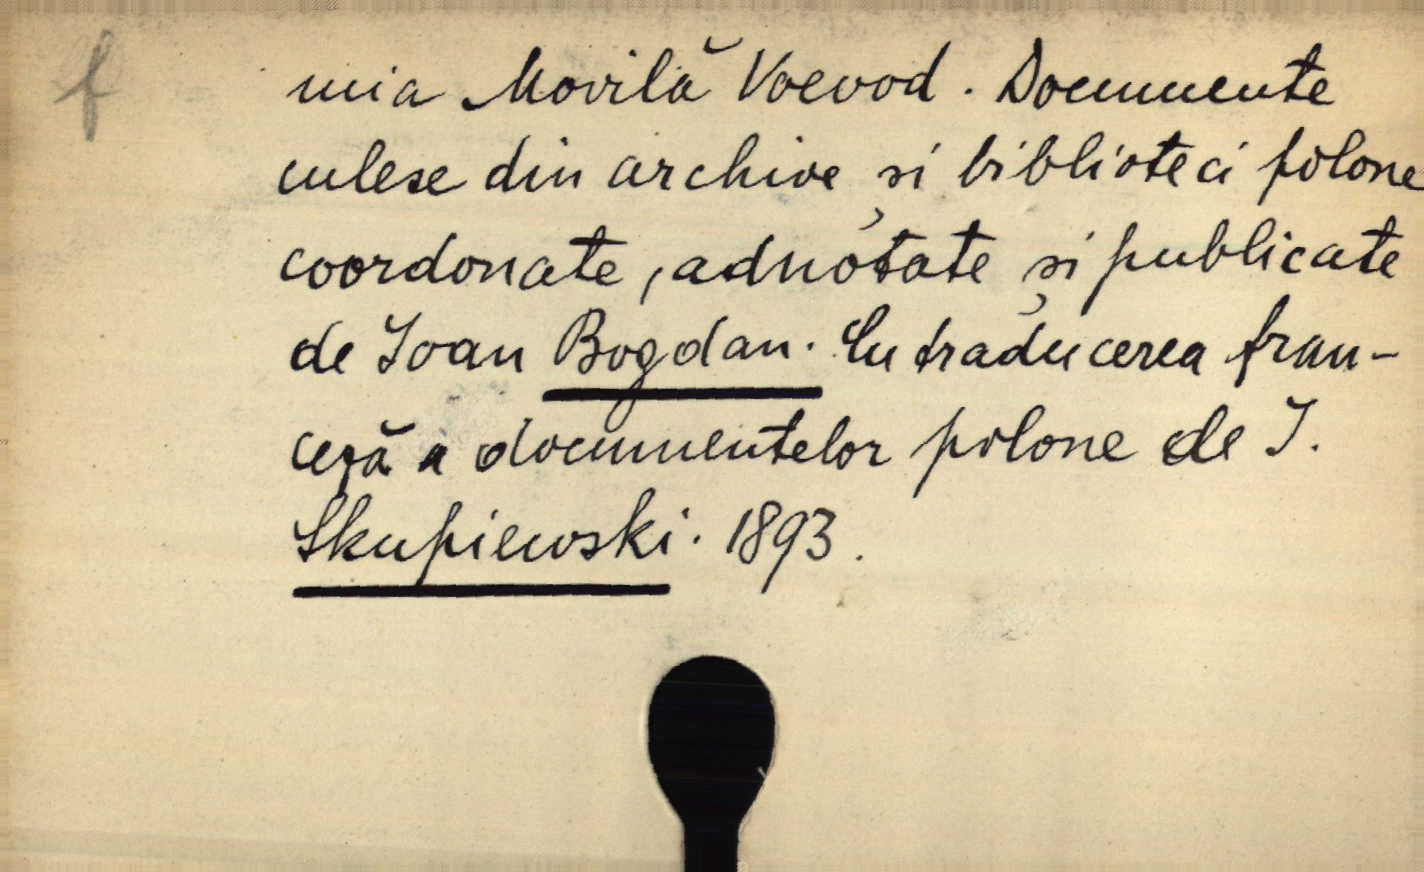 f
mia Movilă Voevod. Documente
culese din archive și biblioteci polone
coordonate, adnotate și publicate
de Ioan Bogdan. Cu traducerea fran-
ceză a documentelor polone de I.
Skupiewski. 1893.